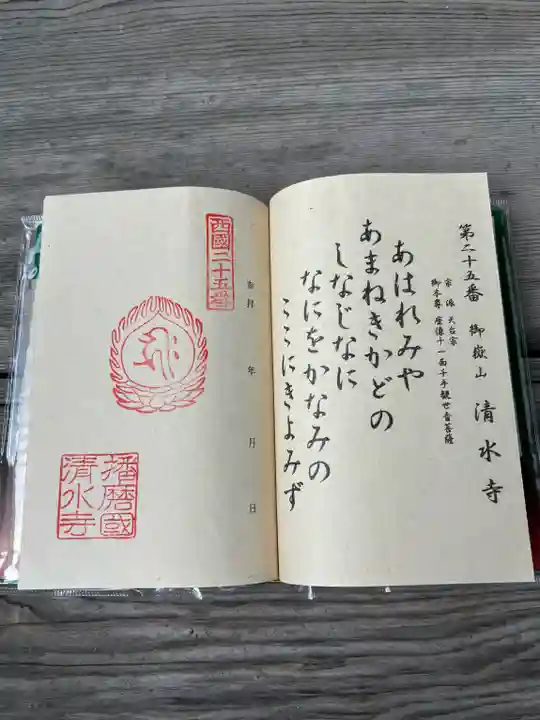 第二十五番 御嶽山 清水寺
宗派 天台宗
御本尊 座像十一面千手観世音菩薩
あはれみや
あまねきかどの
しなじなに
なにをかなみの
ここにきよみず
奉拝 年 月 日
西國二十五番
播磨國
清水寺